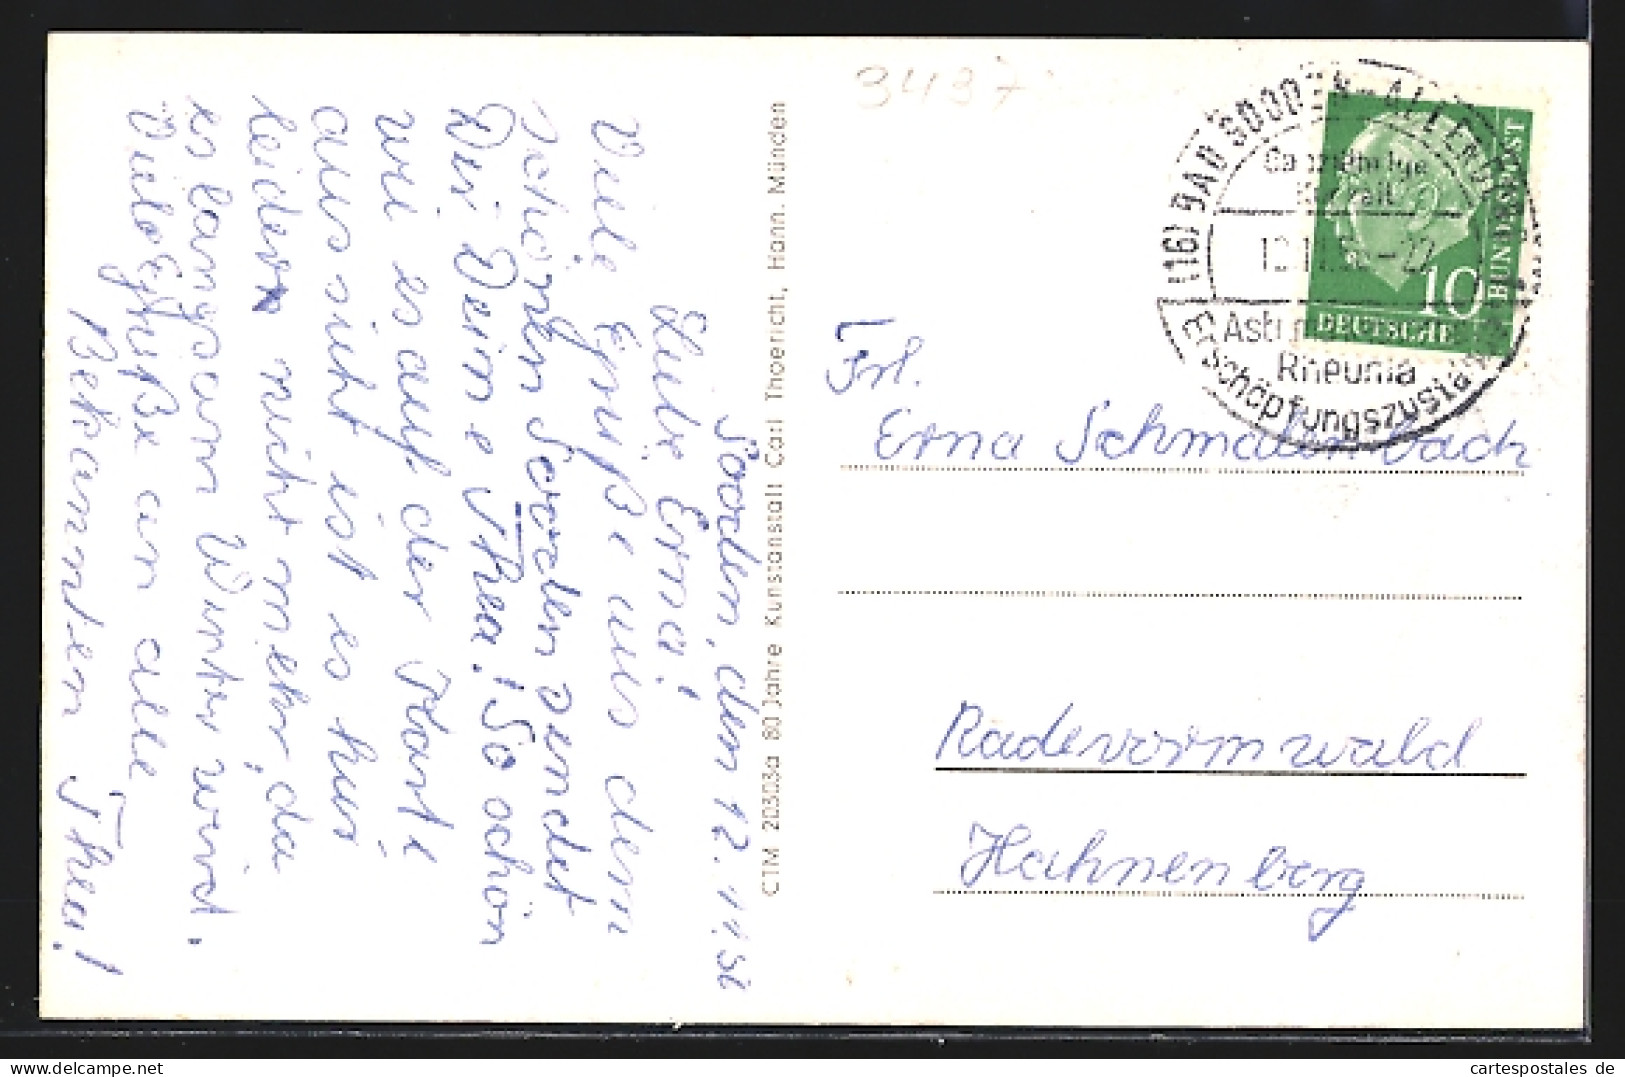 Sooden, den 12.11.56
Liebe Erna!
Viele Grüße aus dem
schönen Sooden sendet
Dir Deine Thea! So schön
wie es auf der Karte
aussieht ist es hier
leider nicht mehr, da
es langsam Winter wird.
Viele Grüße an alle
Bekannten Thea!
CTM 20303a 80 Jahre Kunstanstalt Carl Thoericht, Hann. Münden
3437
(16) BAD SOODEN-ALLENDORF
Ganzjährige
Kurzeit
Asthma
Rheuma
Erschöpfungszustände
BUNDESPOST
10
DEUTSCHE
Frl.
Erna Schmalenbach
Radevormwald
Hahnenberg
www.cartespostales.de